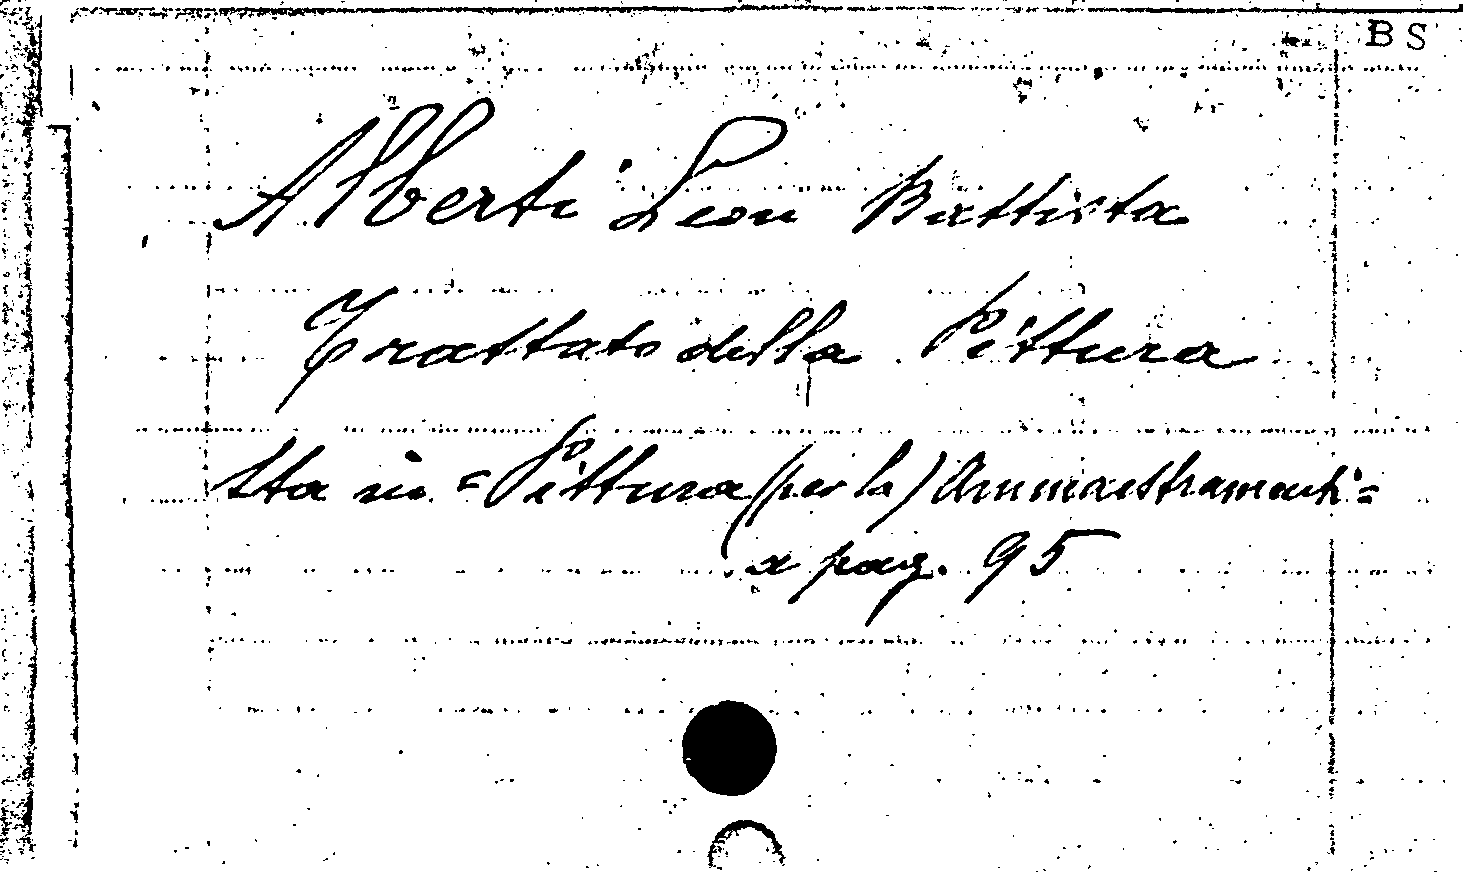 BS
Alberti Leon Battista
Trattato della Pittura
Sta in = Pittura (per la) Ammaestramenti =
a pag. 95